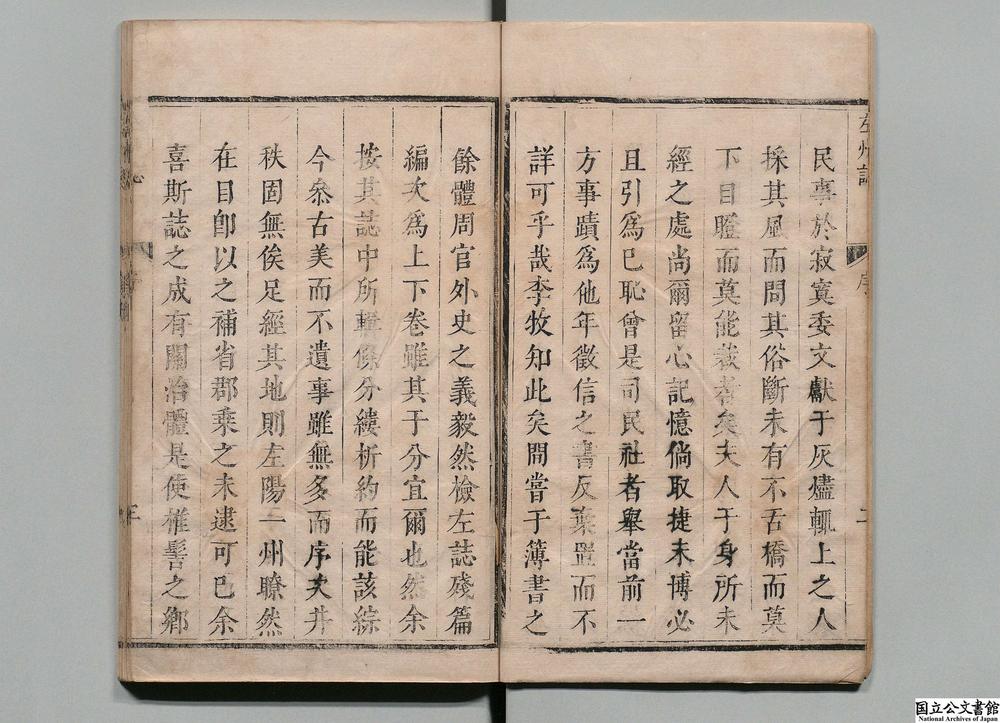 左州誌
序
二
民事於寂寞委文獻于灰燼輒上之人
採其風而問其俗斷未有不舌橋而莫
下目瞪而莫能裁者矣夫人于身所未
經之處尚爾留心記憶倘取捷未博必
且引為已恥曾是司民社者舉當前一
方事蹟為他年徵信之書反棄置而不
詳可乎哉李牧知此矣間嘗于簿書之
餘體周官外史之義毅然檢左誌殘篇
編次為上下卷雖其于分宜爾也然余
按其誌中所輯條分縷析約而能該綜
今叅古美而不遺事雖無多而序次井
秩固無俟足經其地則左陽一州瞭然
在目卽以之補省郡乘之未逮可已余
喜斯誌之成有關治體是使椎髻之鄉
国立公文書館
National Archives of Japan